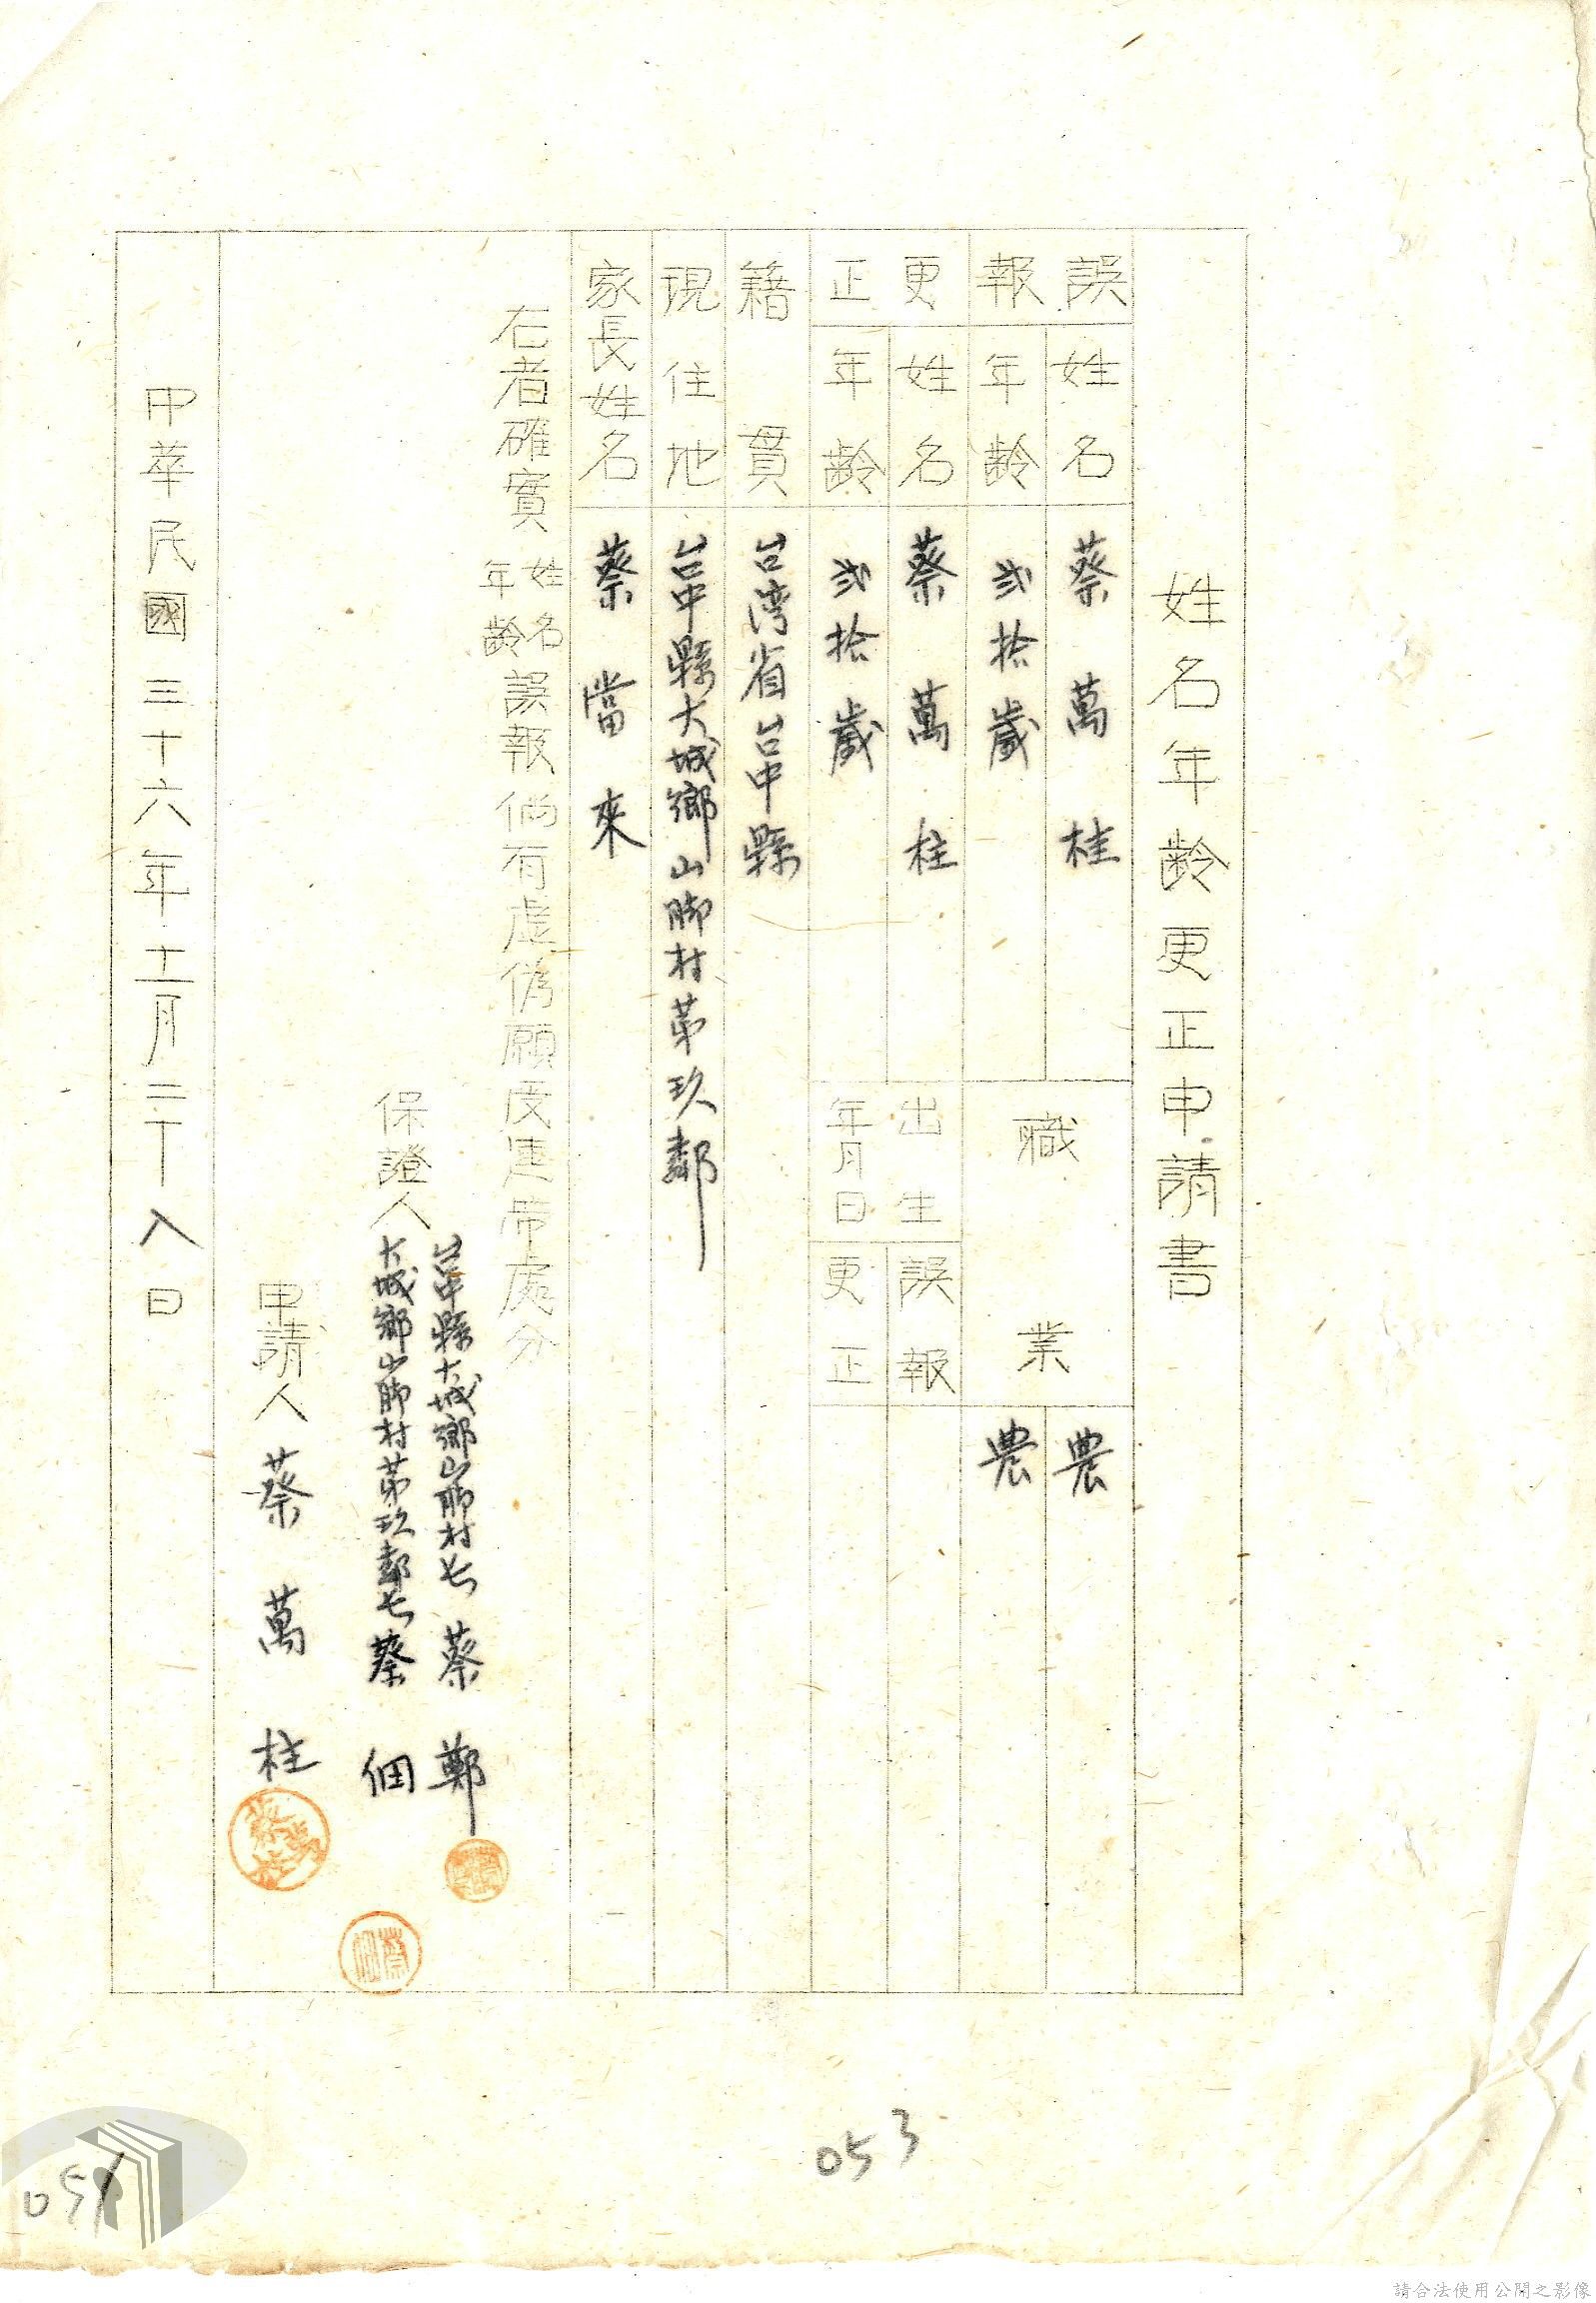 姓名年齡更正申請書
誤報
姓名
蔡萬桂
年齡
弍拾歲
職業
農
農
更正
姓名
蔡萬柱
年齡
弍拾歲
出生年月日
誤報
更正
籍貫
台湾省台中縣
現住地
台中縣大城鄉山脚村第玖鄰
家長姓名
蔡當來
右者確實姓名年齡誤報倘有虛偽願受連帶處分
保證人
台中縣大城鄉山脚村長 蔡鄭
大城鄉山脚村第玖鄰長 蔡佃
申請人 蔡萬柱
中華民國三十六年十二月二十八日
053
請合法使用公開之影像